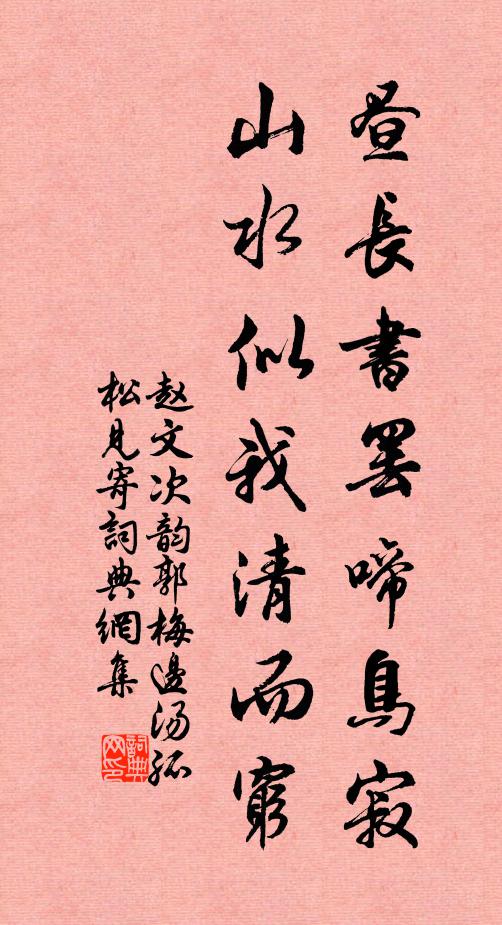 昼長書罷啼鳥寂
山水似我清而窮
赵文次韵郭梅邊汤孤
松見寄詞典網集
詞典网印